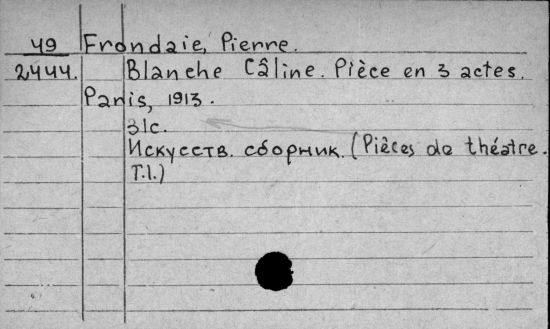 49 Frondaie, Pierre.
2444. Blanche Câline. Pièce en 3 actes.
Paris, 1913.
31с.
Искусств. сборник. (Pièces de théatre.
T.I.)